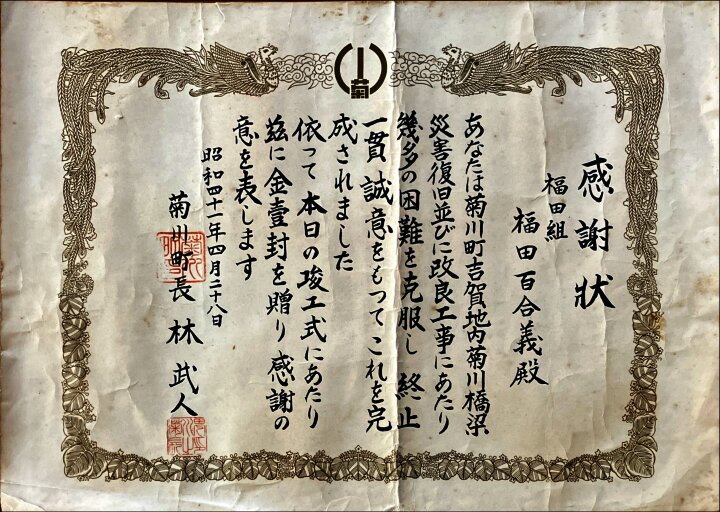 感謝状
福田組
福田百合義殿
あなたは菊川町吉賀地内菊川橋梁
災害復旧並びに改良工事にあたり
幾多の困難を克服し 終止
一貫 誠意をもつてこれを完
成されました
依って 本日の竣工式にあたり
茲に 金壹封を贈り 感謝の
意を表します
昭和四十一年四月二十八日
菊川町長 林 武人